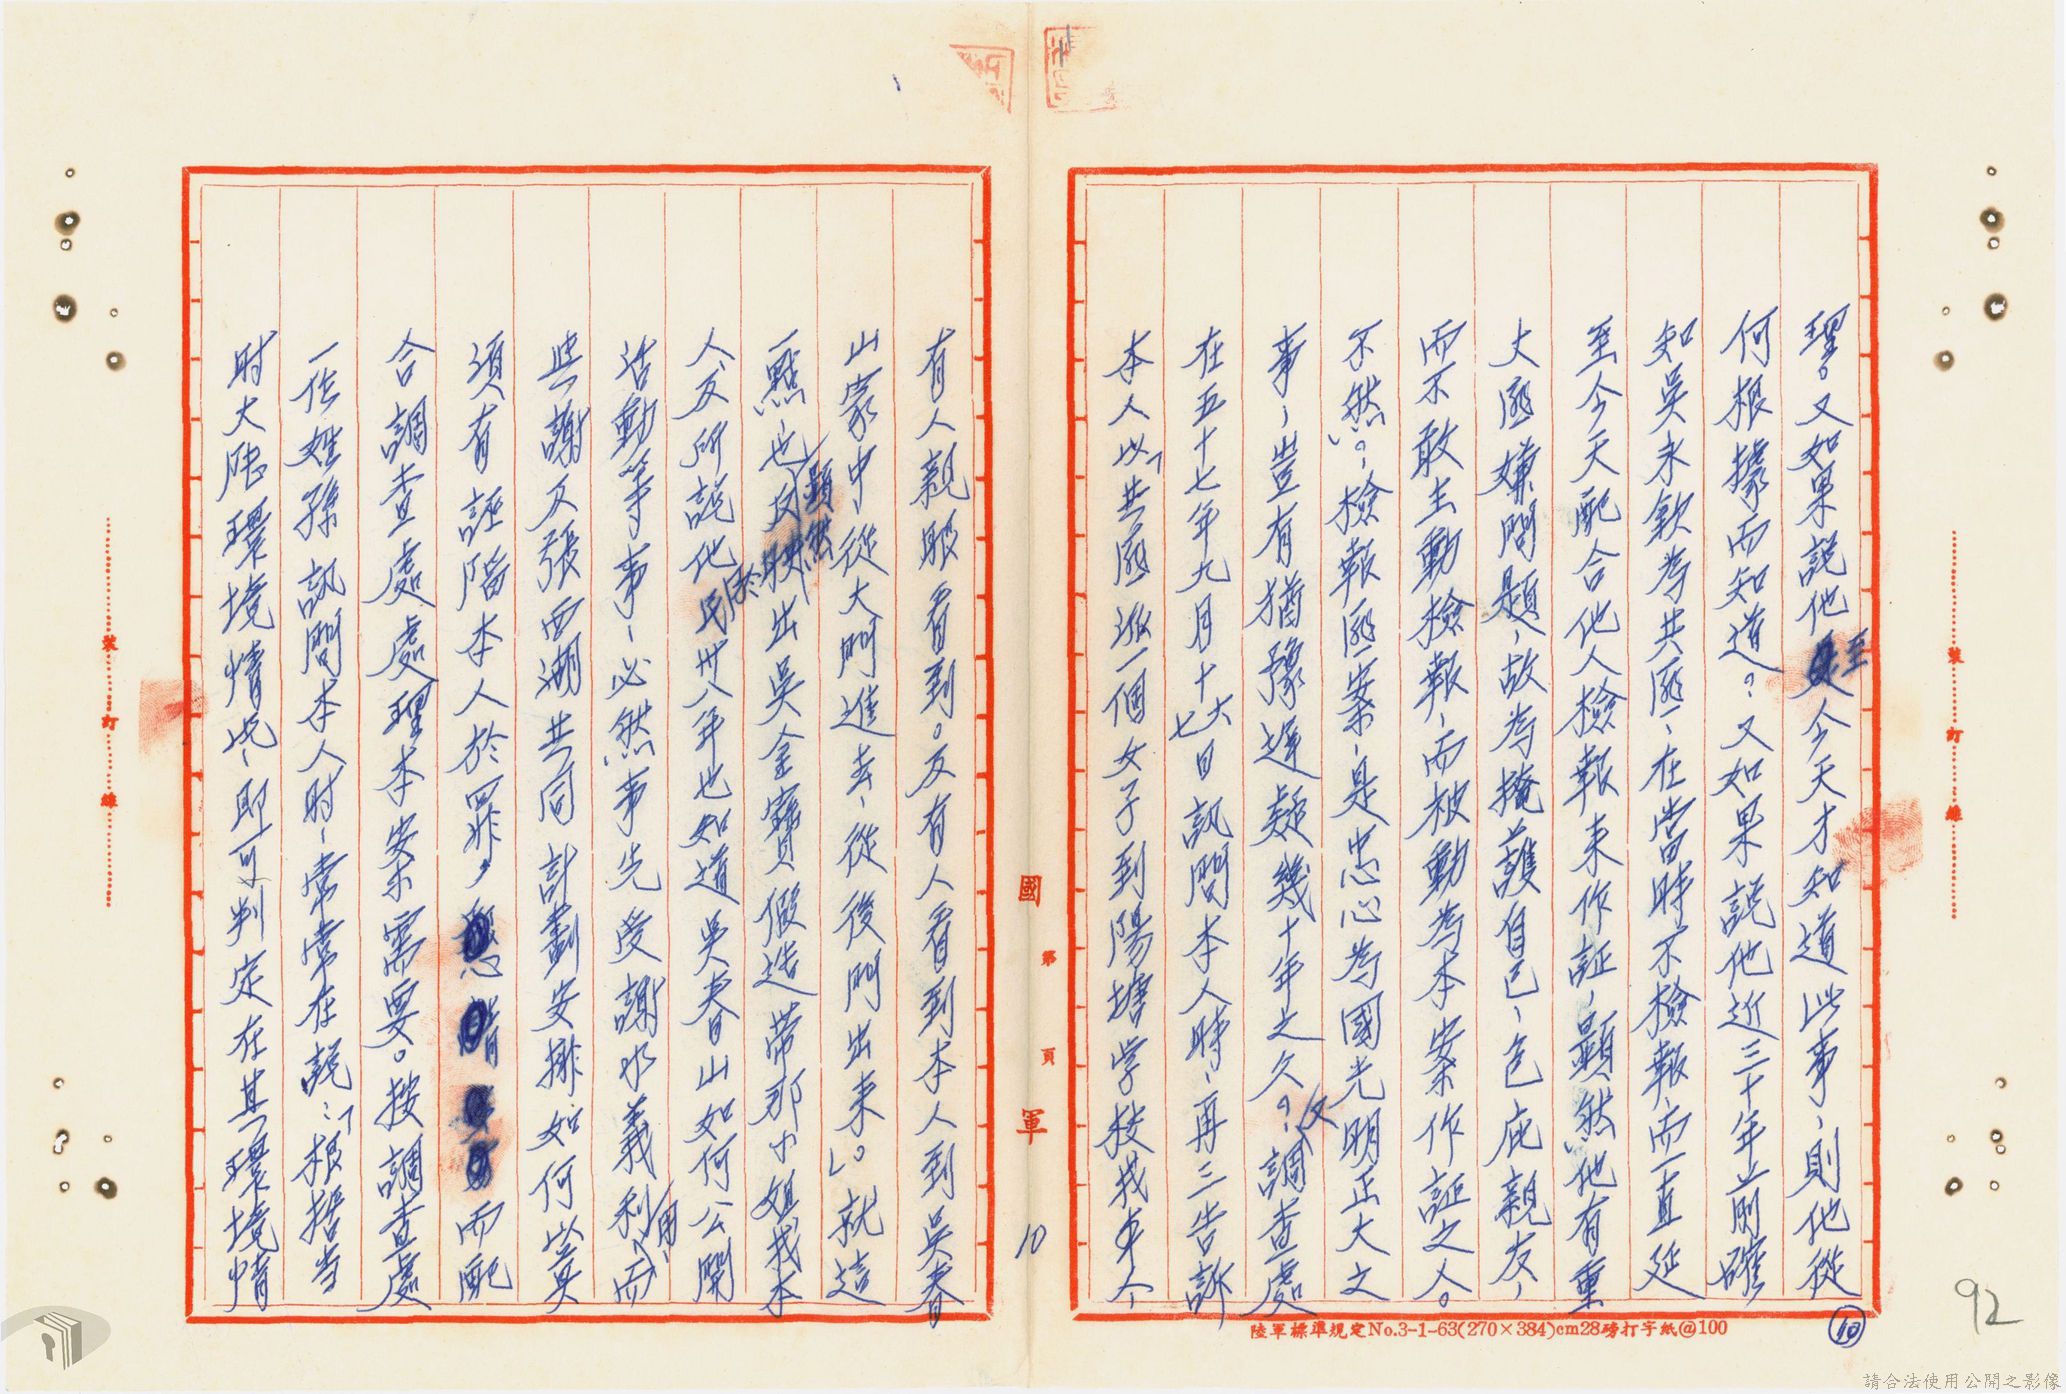 理。又如果說他至今天才知道此事，則他從
何根據而知道？又如果說他近三十年之前確
知吳永欽為共匪，在當時不檢報，而一直延
至今天配合他人檢報來作証，顯然他有重
大匪嫌問題，故為掩護自己，包庇親友，
而不敢主動檢報，而被動為本案作証之人。
不然？檢報匪案，是忠心為國光明正大之
事，豈有猶豫遲疑幾十年之久？又調查處
在五十七年九月十六七日訊問本人時，再三告訴
本人以「共匪派一個女子到陽塘学校找本人，
有人親眼看到。又有人看到本人到吳春
山家中從大門進去，從後門出來」。就這
一點，也顯然反映出吳金寶假造帶那小姐找本
人，及所說他於民卅八年也知道吳春山如何公開
活動等事，必然事先受謝水義利用，而
與謝及張西湖共同計劃安排如何
須有誣陷本人於罪，而配
合調查處處理本案需要。按調查處
一位姓孫訊問本人時，常常在說：「根據当
時大陸環境情况，即可判定在某環境情
國 軍
第 頁
10
裝 訂 線
裝 訂 線
陸軍標準規定No.3-1-63(270×384)cm28磅打字紙@100
10
92
請合法使用公開之影像